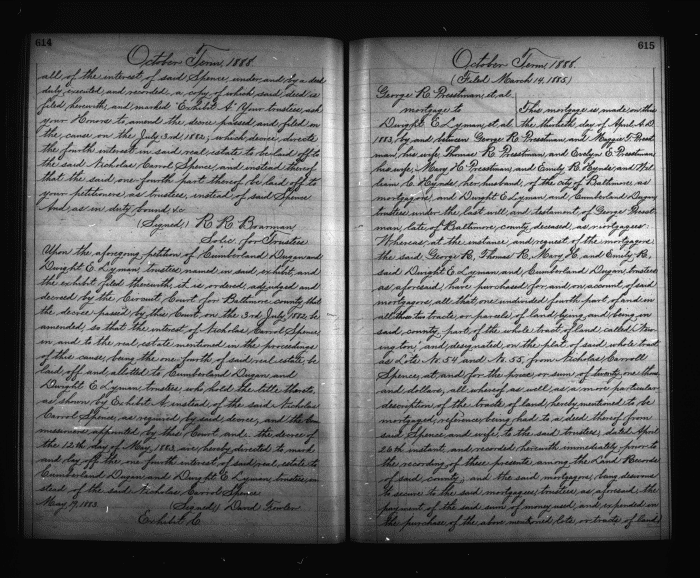 614
October Term, 1888.
all of the interest of said Spence, under and by a deed
duly executed and recorded, a copy of which said deed is
filed herewith and marked "Exhibit A". Your trustees, ask
your Honors to amend the decree passed and filed in
the cause on the July 3rd 1882, which decree directs
the fourth interest in said real estate to be laid off to
the said Nicholas Carrol Spence, and instead thereof
that the said one-fourth part thereof be laid off to
your petitioners, as trustees, instead of said Spence
And as in duty bound &c
(Signed) R. R. Boarman
Solic. for Trustees
Upon the aforegoing petition of Cumberland Dugan and
Dwight E Lyman, trustees named in said exhibit, and
the exhibit filed therewith, it is ordered, adjudged and
decreed by the Circuit Court for Baltimore county, that
the decree passed by this Court, on the 3rd July, 1882, be
amended, so that the interest of Nicholas, Carrol Spence,
in and to the real estate mentioned in the proceedings
of this cause, being the one-fourth of said real estate, be
laid off and allotted to Cumberland Dugan and
Dwight E Lyman, trustees who, hold the title thereto,
as shown by Exhibit A, instead of the said Nicholas
Carrol Spence, as required by said decree, and the
appointed by this Court and the decree of
the 12th day of May, 1883 are hereby directed to mark
and lay off the one fourth interest of said real estate to
Cumberland Dugan and Dwight E Lyman, trustees, in
stead of the said Nicholas Carrol Spence
May 19, 1883. (Signed) David Fowler
Exhibit C
615
October Term, 1888.
(Filed March 14, 1885)
George R. Presstman et al
mortgage to This mortgage, is made on this
Dwight E Lyman et al the thirtieth, day of April A.D
1883, by and between George R. Presstman and Maggie F. Presst
man, his wife, Thomas R. Presstman, and Evelyn E. Presstman
his wife, Mary H. Presstman, and Emily R. Hynds, and Wil
liam C. Hynds, her husband, of the city of Baltimore, as
mortgagors, and Dwight E Lyman, and Cumberland Dugan
trustees under the last will, and testament, of George Presst
man, late of Baltimore, county, deceased, as mortgagees.
Whereas, at the instance, and request of the mortgagors
the said George R, Thomas R. Mary H, and Emily R.
said Dwight E Lyman, and Cumberland Dugan, trustees
as aforesaid, have purchased for and on account of said
mortgagors, all that one undivided fourth part of and in
all the tracts, or parcels of land lying, and being in
said, county, part of the whole tract of land, called
and designated, on the plat of said whole tract
as Lots No 54 and No 55, from Nicholas Carroll
Spence, at and for the price or sum of twenty, one thous
and dollars, all whereof as well as a more particular
description of the tracts of land, hereby mentioned to be
mortgaged, reference being had to a deed thereof from
said Spence, and wife, to the said trustees, dated April
26th instant, and recorded herewith immediately prior to
the recording of these presents among the Land Records
of said, county, and the said, mortgagors, being desirous
to secure to the said mortgagees, trustees, as aforesaid, the
payment of the said sum of money used, and expended in
the purchase of the above mentioned, lots, or tracts of land,